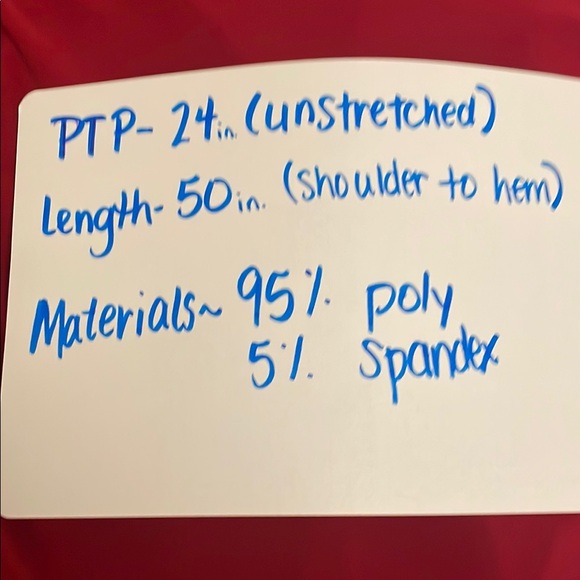 PTP- 24in. (unstretched)
Length- 50in. (shoulder to hem)
Materials~ 95% poly
5% spandex